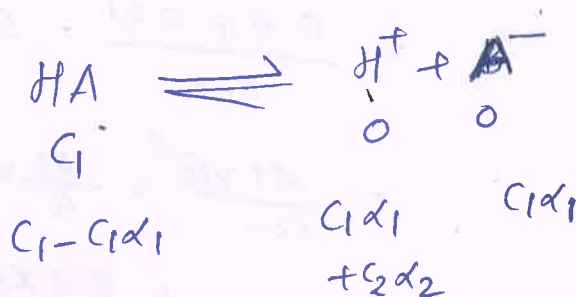 HA ⇌ H⁺ + A⁻
C₁ 0 0
C₁ – C₁α₁ C₁α₁ C₁α₁
+C₂α₂